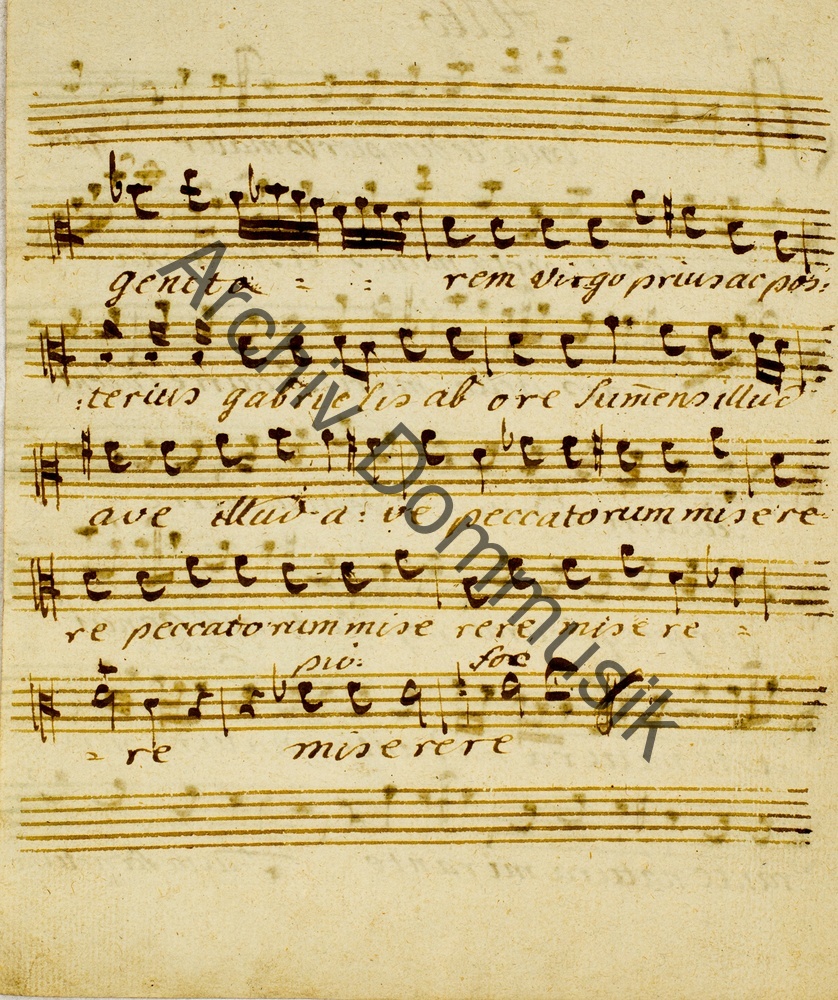 genito = = rem virgo prius ac pos:
:terius gabrielis ab ore sum̄ens illud
ave illud a: ve peccatorum misere
re peccatorum mise rere misere =
pio: for
= re miserere
Archiv Dommusik